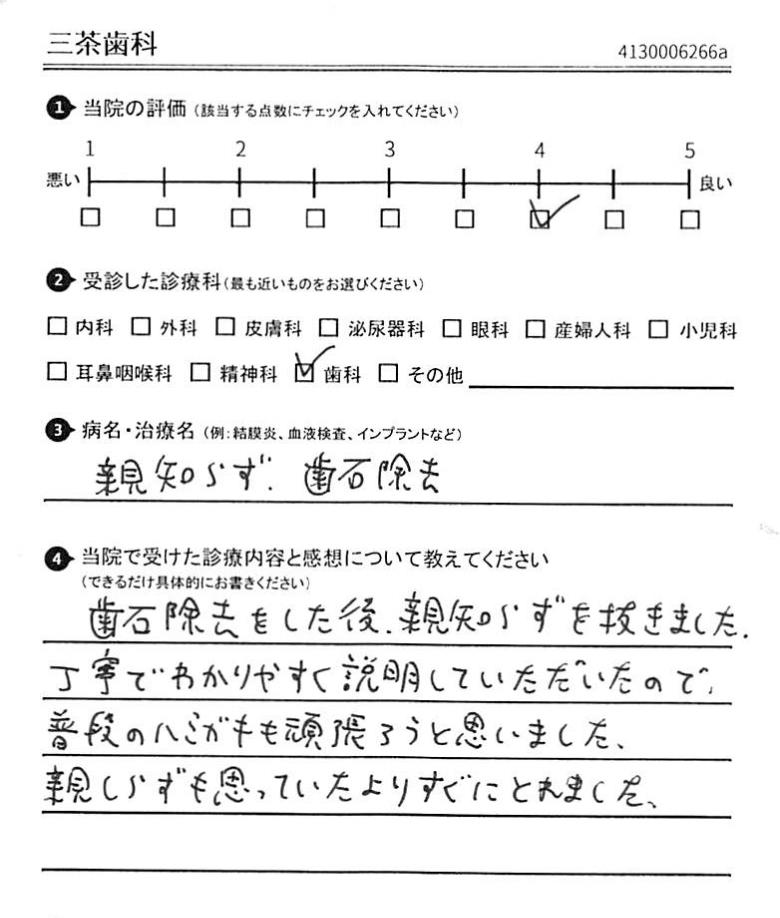 三茶歯科
4130006266a
1 当院の評価（該当する点数にチェックを入れてください）
1 2 3 4 5
悪い 良い
2 受診した診療科（最も近いものをお選びください）
内科 外科 皮膚科 泌尿器科 眼科 産婦人科 小児科
耳鼻咽喉科 精神科 歯科 その他
3 病名・治療名（例：結膜炎、血液検査、インプラントなど）
親知らず、歯石除去
4 当院で受けた診療内容と感想について教えてください
（できるだけ具体的にお書きください）
歯石除去をした後、親知らずを抜きました。
丁寧でわかりやすく説明していただいたので、
普段のハミガキも頑張ろうと思いました。
親しらずも思っていたよりすぐにとれました。